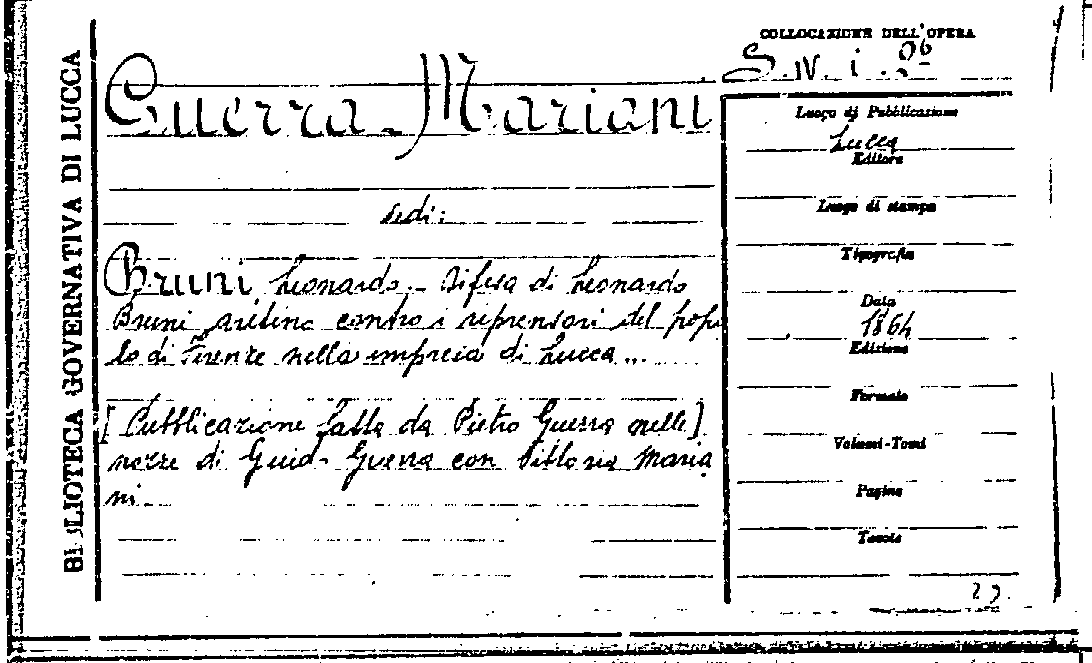 BIBLIOTECA GOVERNATIVA DI LUCCA
COLLOCAZIONE DELL'OPERA
Guerra-Mariani
vedi:
Bruni Leonardo - Difesa di Leonardo
Bruni aretino contro i riprensori del popo
lo di Firenze nella impresa di Lucca ...
[Pubblicazione fatta da Pietro Guerra nelle]
nozze di Guido Guerra con Vittoria Maria
ni.
Luogo di Pubblicazione
Lucca
Editore
Luogo di stampa
Tipografia
Data
1864
Edizione
Formato
Volumi-Tomi
Pagine
Tavole